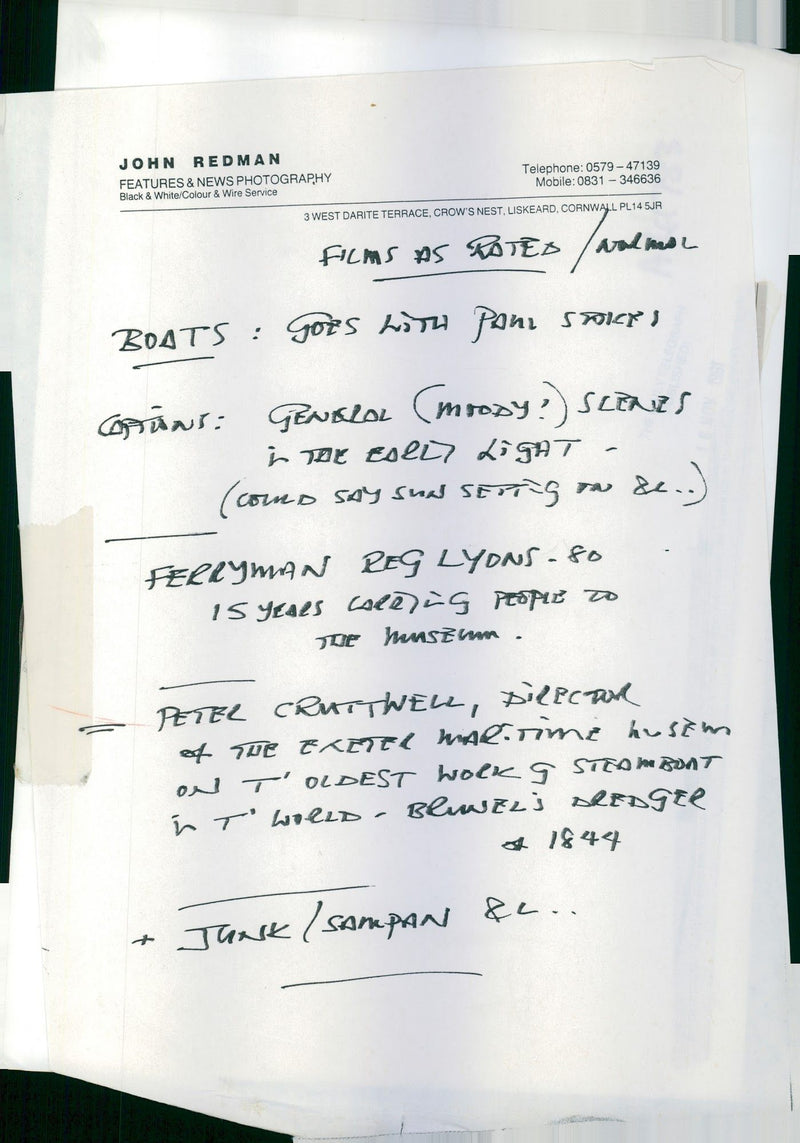 JOHN REDMAN
FEATURES & NEWS PHOTOGRAPHY
Black & White/Colour & Wire Service
Telephone: 0579 – 47139
Mobile: 0831 – 346636
3 WEST DARITE TERRACE, CROW'S NEST, LISKEARD, CORNWALL PL14 5JR
FILMS AS RATED / NORMAL
BOATS : GOES WITH PAUL STOKES
CAPTIONS: GENERAL (MOODY!) SCENES
in THE EARLY LIGHT -
(COULD SAY SUN SETTING ON &c..)
FERRYMAN REG LYONS - 80
15 YEARS CARRYING PEOPLE TO
THE MUSEUM.
= PETER CRUTTWELL, DIRECTOR
of THE EXETER MARITIME MUSEUM
ON T' OLDEST WORKG STEAMBOAT
in T' WORLD - BRUNEL'S DREDGER
of 1844
+ JUNK/SAMPAN &c...